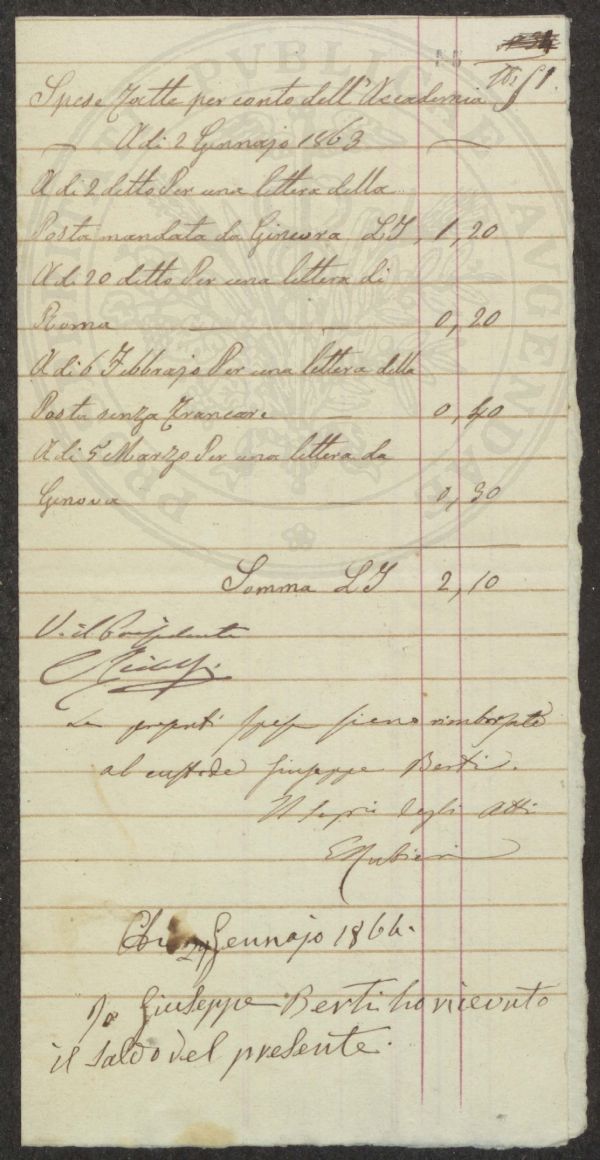 Spese Fatte per conto dell'Accademia
A di 2 Gennajo 1863
A di 2 detto Per una lettera della
Posta mandata da Ginevra LI, 1,20
A di 20 detto Per una lettera di
Roma 0,20
A di 6 Febbrajo Per una lettera della
Posta senza Francare 0,40
A di 5 Marzo Per una lettera da
Genova 0,30
Somma LI 2,10
V. il Presidente
Ridolfi
Le presenti spese sieno rimborsate
al custode Giuseppe Berti.
Il Segrio degli Atti
E Rubieri
Gennajo 1864.
Io Giuseppe Berti ho ricevuto
il saldo del presente.